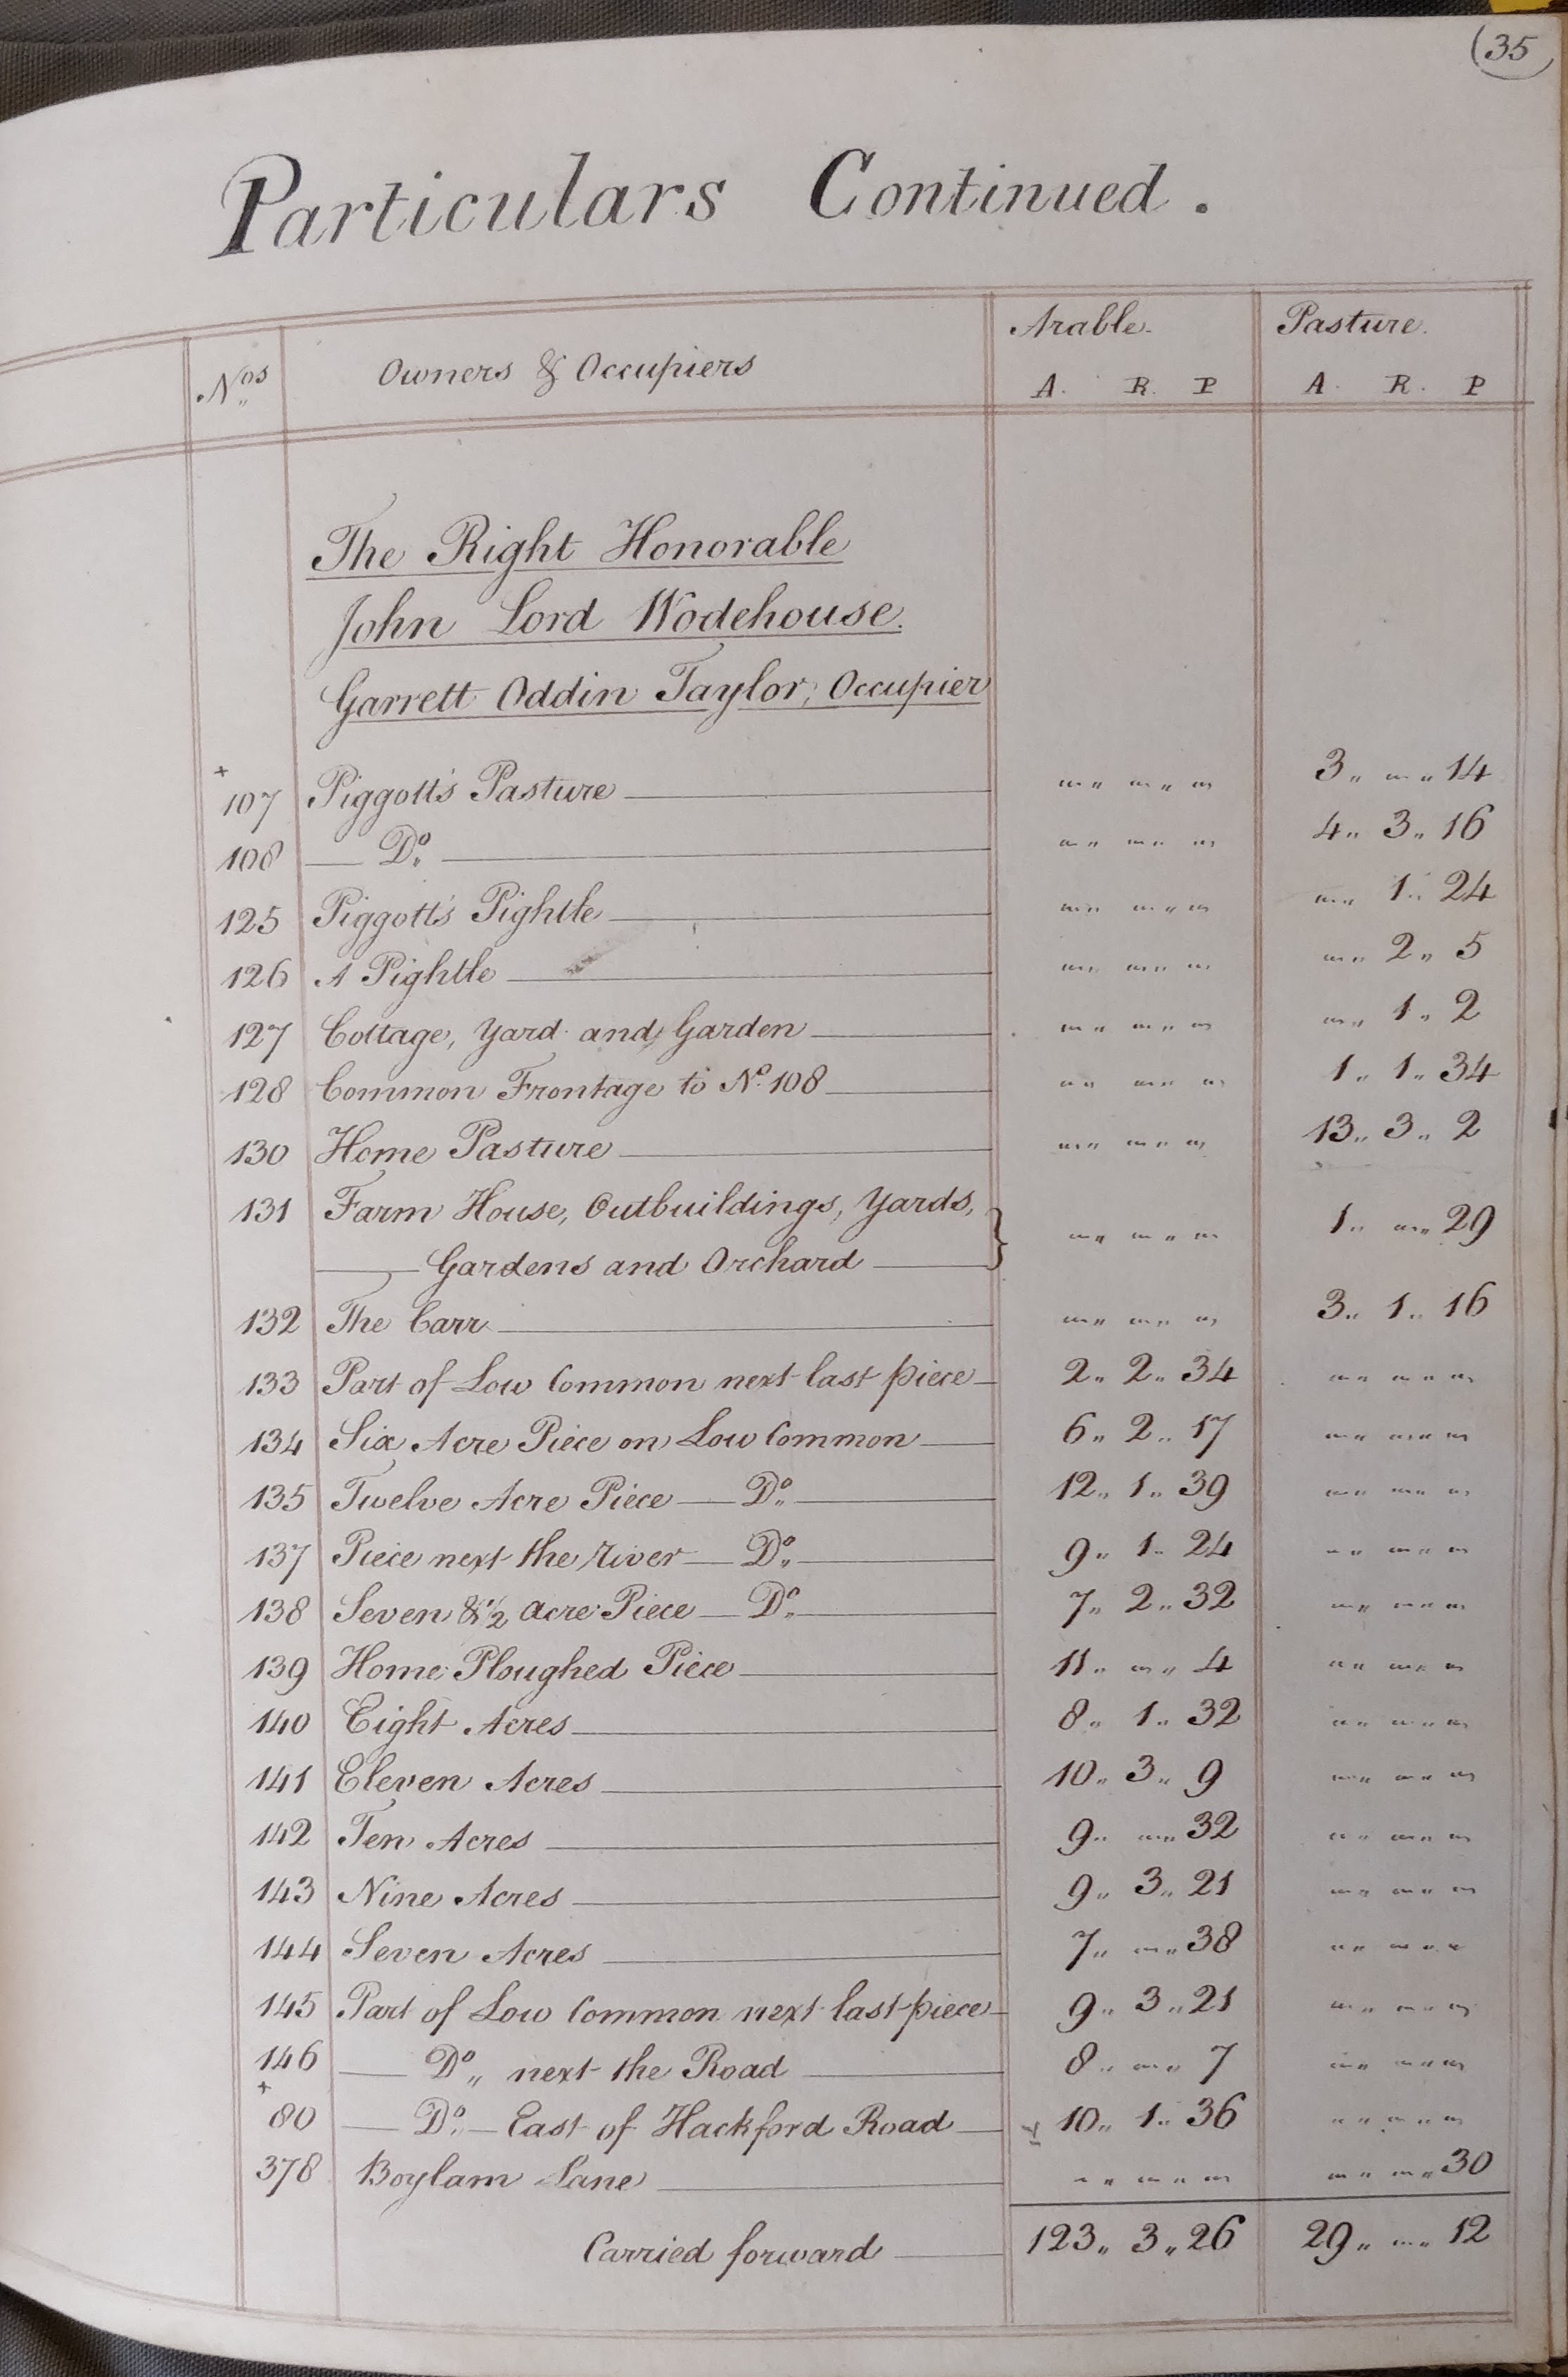 (35
Particulars Continued.
Nos Owners & Occupiers Arable. Pasture.
A. R. P A. R. P
The Right Honorable
John Lord Wodehouse.
Garrett Oddin Taylor, Occupier
+
107 Piggott's Pasture — „ — „ — 3 „ — „ 14
108 Do — „ — „ — 4 „ 3 „ 16
125 Piggott's Pightle — „ — „ — — „ 1 „ 24
126 A Pightle — „ — „ — — „ 2 „ 5
127 Cottage, Yard and Garden — „ — „ — — „ 1 „ 2
128 Common Frontage to No. 108 — „ — „ — 1 „ 1 „ 34
130 Home Pasture — „ — „ — 13 „ 3 „ 2
131 Farm House, Outbuildings, Yards,
Gardens and Orchard } — „ — „ — 1 „ — „ 29
132 The Carr — „ — „ — 3 „ 1 „ 16
133 Part of Low Common next last piece 2 „ 2 „ 34 — „ — „ —
134 Six Acre Piece on Low Common 6 „ 2 „ 17 — „ — „ —
135 Twelve Acre Piece — Do 12 „ 1 „ 39 — „ — „ —
137 Piece next the river — Do 9 „ 1 „ 24 — „ — „ —
138 Seven & ½ acre Piece — Do 7 „ 2 „ 32 — „ — „ —
139 Home Ploughed Piece 11 „ — „ 4 — „ — „ —
140 Eight Acres 8 „ 1 „ 32 — „ — „ —
141 Eleven Acres 10 „ 3 „ 9 — „ — „ —
142 Ten Acres 9 „ — „ 32 — „ — „ —
143 Nine Acres 9 „ 3 „ 21 — „ — „ —
144 Seven Acres 7 „ — „ 38 — „ — „ —
145 Part of Low Common next last piece 9 „ 3 „ 21 — „ — „ —
146 — Do „ next the Road 8 „ — „ 7 — „ — „ —
+
80 — Do — East of Hackford Road 10 „ 1 „ 36 — „ — „ —
378 Boylam Lane — „ — „ — — „ — „ 30
Carried forward 123 „ 3 „ 26 29 „ — „ 12